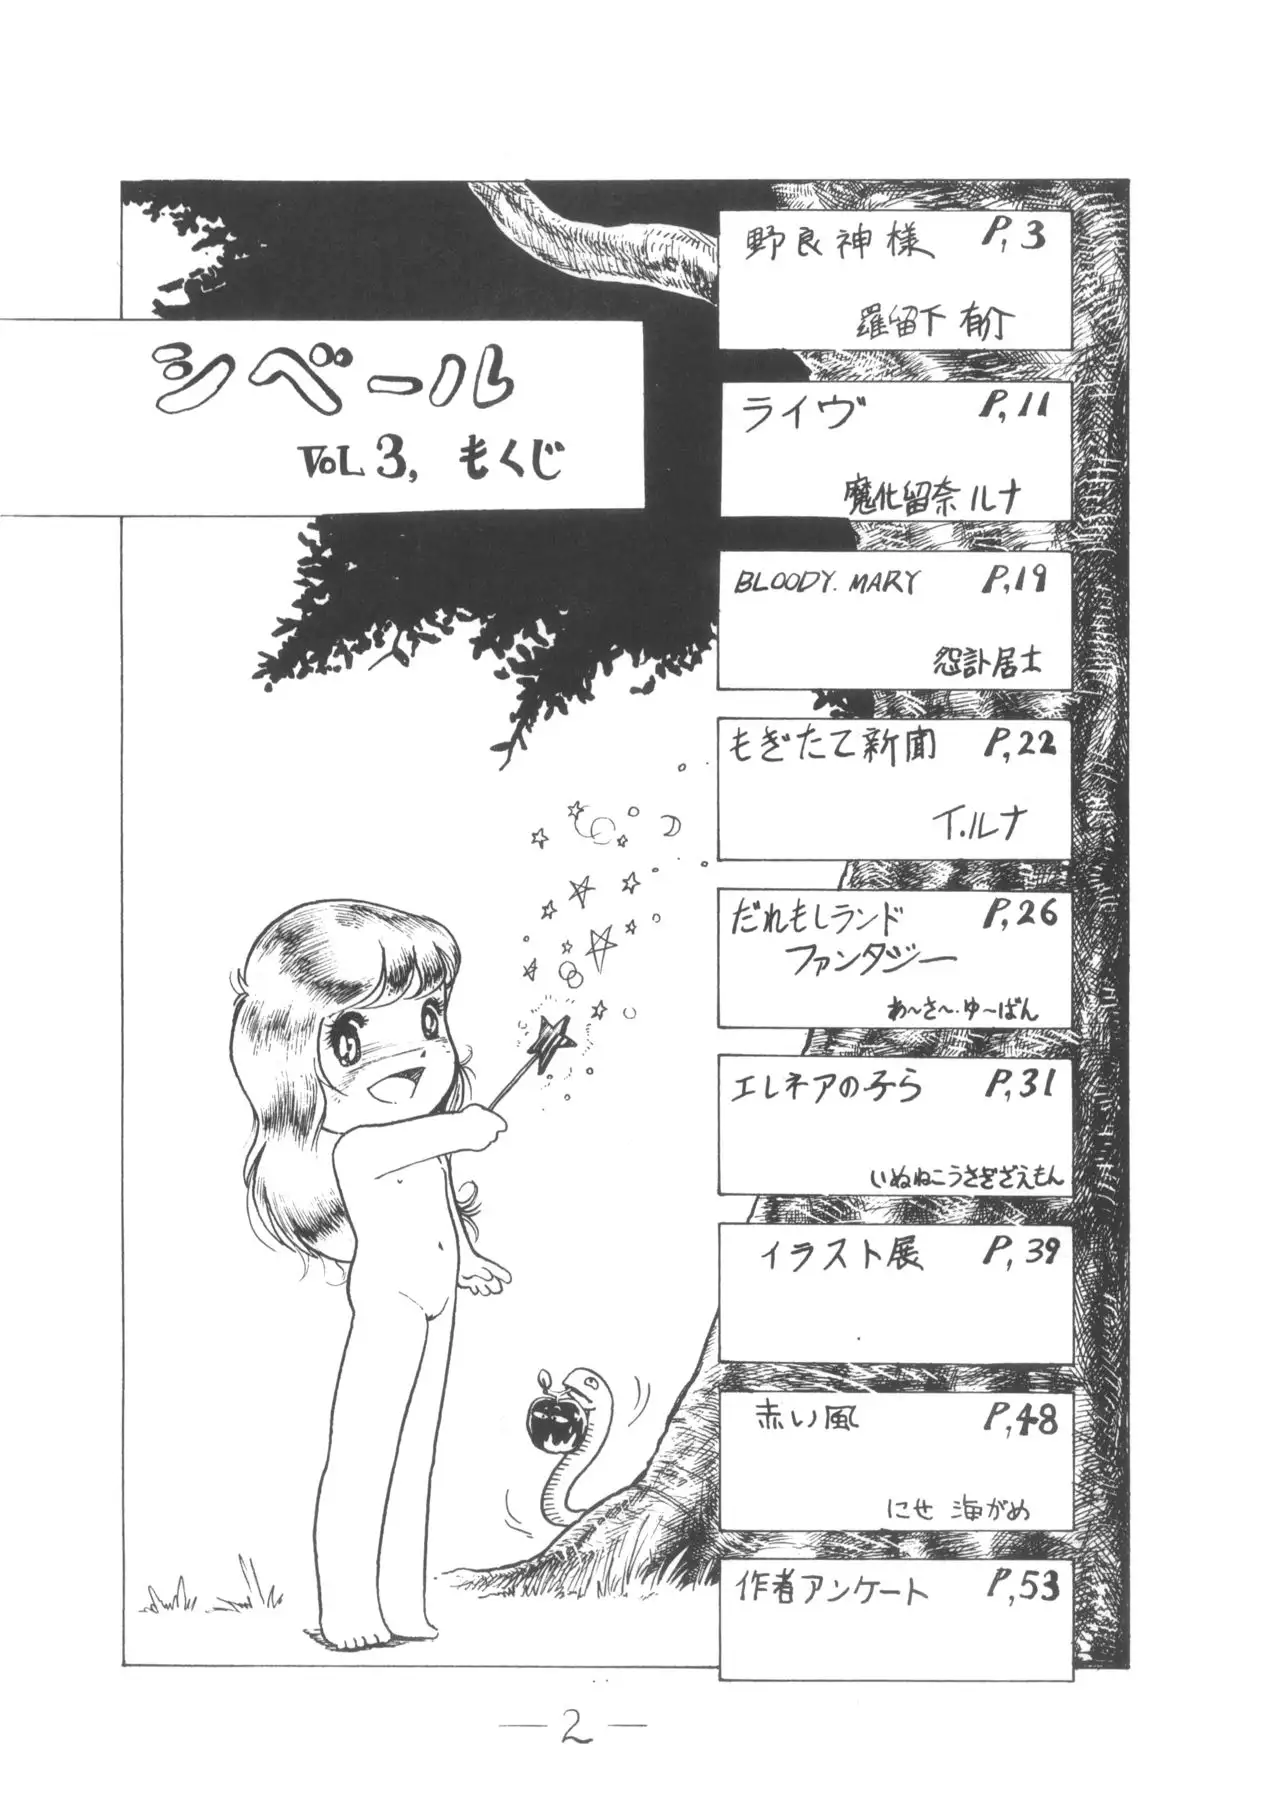 シベール
VOL 3, もくじ
野良神様 P,3
羅留下 有介
ライヴ P,11
魔化留奈 ルナ
BLOODY. MARY P,19
怨訃居士
もぎたて新聞 P,22
イ.ルナ
だれもしランド P,26
ファンタジー
あ〜さ〜・ゆ〜ばん
エレネアの子ら P,31
いぬねこうさぎざえもん
イラスト展 P,39
赤い風 P,48
にせ 海がめ
作者アンケート P,53
—2—